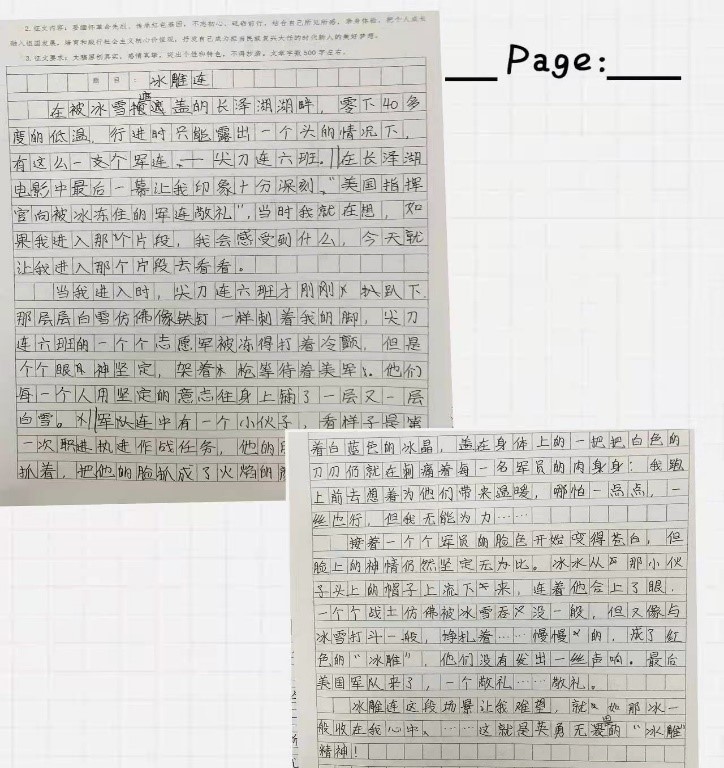 Page:
2. 征文内容:要缅怀革命先烈,传承红色基因,不忘初心、砥砺前行,结合自己所见所感,亲身体验,把个人成长
融入祖国发展,培育和践行社会主义核心价值观,抒发自己成为担当民族复兴大任的时代新人的美好梦想。
3. 征文要求:文稿原创真实,感情真挚,突出个性和特色,不得抄袭。文章字数500字左右。
题目:冰雕连
在被冰雪遮盖的长泽湖湖畔,零下40多
度的低温,行进时只能露出一个头的情况下,
有这么一支个军连、——尖刀连六班。在长泽湖
电影中最后一幕让我印象十分深刻。"美国指挥
官向被冰冻住的军连敬礼",当时我就在思,如
果我进入那个片段,我会感受到什么,今天就
让我进入那个片段去看看。
当我进入时,尖刀连六班才刚刚趴下.
那层层白雪仿佛像铁钉一样刺着我的脚,尖刀
连六班的一个个志愿军被冻得打着冷颤,但是
个个眼神坚定,架着枪等待着美军。他们
每一个人用坚定的意志往身上铺了一层又一层
白雪。军队连中有一个小伙子,看样子是第
一次执进作战任务,他的
抓着,把他的脸抓成了火焰的
着白蓝色的冰晶,盖在身体上的一把把白色的
刀刃仍就在刺痛着每一名军员的肉身:我跑
上前去想着为他们带来温暖,哪怕一点点,一
丝也行,但我无能为力……
接着一个个军员的脸色开始变得苍白,但
脸上的神情仍然坚定无为比。冰水从那小伙
子头上的帽子上流下来,连着他合上了眼.
一个个战士仿佛被冰雪吞没一般,但又像与
冰雪打斗一般,挣扎着……慢慢的,成了红
色的"冰雕",他们没有发出一丝声响。最后
美国军队来了,一个敬礼……敬礼。
冰雕连这段场景让我难望,就如那冰一
般收在我心中、……这就是英勇无畏的"冰雕"
精神!